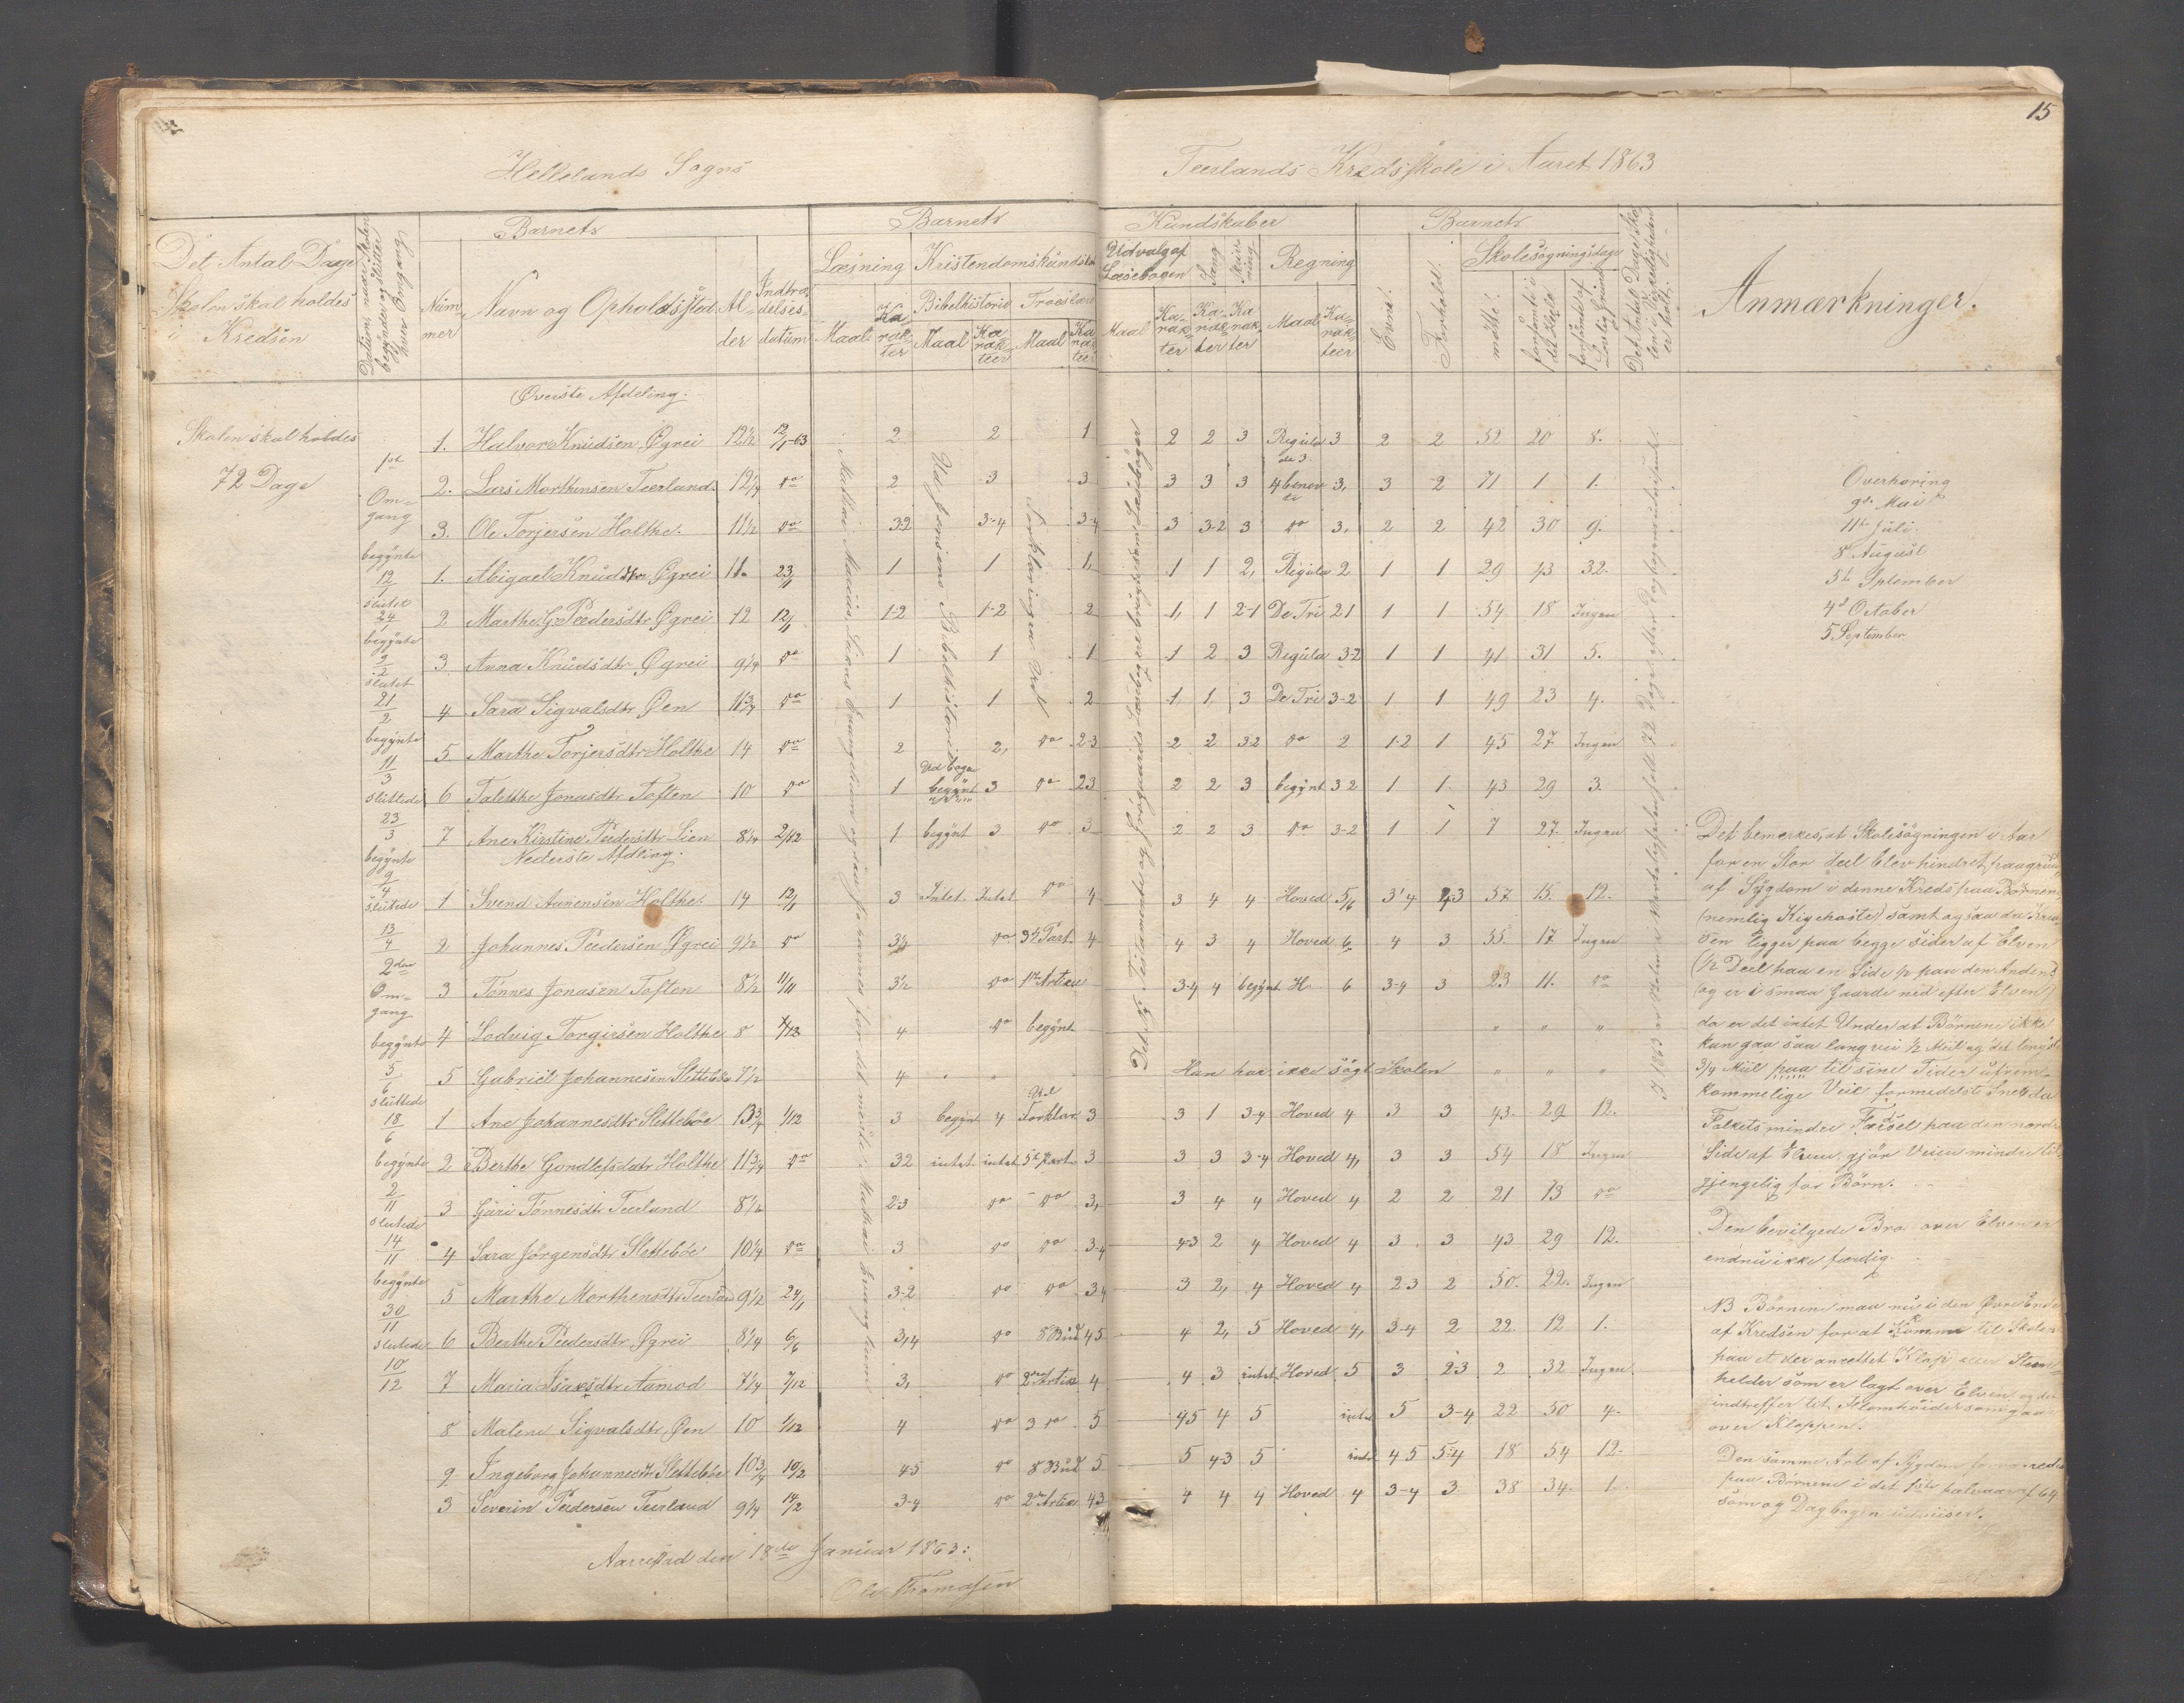 15
Hellelands Sogns
Teerlands Kredsskole i Aaret 1863
Det Antal Dage Skolen skal holdes i Kredsen
Datum naar Skolen begynder og slutter hver Omgang
Barnets
Nummer
Navn og Opholdssted
Alder
Indtrædelsesdatum
Barnets
Kundskaber
Læsning
Maal
Karakter
Kristendomskundskab
Bibelhistorie
Maal
Karakteer
Troeslære
Maal
Karakteer
Udvalg af Læsebogen
Maal
Karakter
Sang
Karakter
Skrivning
Karakter
Regning
Maal
Karakteer
Barnets
Evne
Forhold
Skolesøgningsdage
mødte
forsømte i det Hele
forsømte af lovlig Grund
Det Antal Dage Skolen i Virkeligheden er holdt
Anmærkninger.
Skolen skal holdes
72 Dage
1ste Omgang
begynte 12/1
slutet 24/1
begynte 9/2
slutet 21/2
begynte 11/3
sluttede 23/3
begynte 9/4
slutede 13/4
2den Omgang
begynte 5/6
sluttede 18/6
begynte 2/11
slutede 14/11
begynte 30/11
slutede 10/12
Øverste Afdeling.
1. Halvor Knudsen Øgrei 12 1/2 12/1-63 2 2 1 2 2 3 Regula de 3 3 2 2 52 20 8.
2. Lars Morthensen Teerland 12 1/4 do 2 3 3 3 3 3 4 benevte 3, 3 2 71 1 1.
3. Ole Torjersen Holthe. 11 1/2 do 3-2 3-4 3-4 3 3-2 3 do 3, 2 2 42 30 9.
1. Abigael Knudsdtr Øgrei 11. 23/1 1 1 1, 1 1 2, Regula 2 1 1 29 43 32.
2 Marthe G. Peedersdtr Øgrei 12 12/1 1-2 1-2 2 1, 1 2-1 De Tri 2 1 1 1 54 18 Ingen
3 Anna Knudsdtr Øgrei 9 1/4 do 1 1 1 1 2 3 Regula 3-2 1 1 41 31 5.
4 Sara Sigvalsdtr Øen 11 3/4 do 1 1 2 1, 1, 3 De Tri 3-2 1 1 49 23 4.
5 Marthe Torjersdtr Holthe 14 do 2 2, do 2-3 2 2 3-2 do 2 1-2 1 45 27 Ingen
6 Talette Jonasdtr Toften 10 do 1 begynt 3 do 2 3 2 2 3 begynt 3 2 1 1 43 29 3.
7 Ane Kirstine Peedersdtr Lien 8 1/4 2/12 1 begynt 3 do 3 2 2 3 do 3-2 1 1 7 27 Ingen
Nederste Afdeling.
1 Svend Aanensen Holthe. 14 12/1 3 Intet Intet do 4 3 4 4 Hoved 5/6 3 4 4-3 57 15. 12.
2 Johannes Peedersen Øgrei 9 1/2 do 3 1/2 do 3die Part. 4 4 3 4 Hoved 6 4 3 55 17 Ingen
3 Tønnes Jonasen Toften 8 1/2 11/11 3 1/2 do 1ste Artikel 3-4 4 begynt H. 6 3-4 3 23 11. do
4 Lodvig Torgirsen Holthe 8 1/12 4 do begynt " " "
5 Gabriel Johannesen Slettebøe 7 1/2 4 Han har ikke søgt Skolen " " "
1 Ane Johannesdtr Slettebøe 13 3/4 1/12 3 begynt 4 Ud Forklar. 3 3 1 3-4 Hoved 4 3 3 43. 29 12.
2 Berthe Gondlefsdatr Holthe 11 3/4 do 3 2 intet intet 5te Part 3 3 3 3-4 Hoved 4, 3 3 54 18 Ingen
3 Guri Tønnesdtr Teerland 8 1/2 2-3 do do 3, 3 4 4 Hoved 4 2 2 21 13 do
4 Sara Jørgensdtr Slettebøe 10 1/4 do 3 do do 3-4 4-3 2 4 Hoved 4 3 3 43 29 12.
5 Marthe Morthensdtr Teerland 9 1/2 24/1 3-2 do do 3 4 3 2, 4 Hoved 4 2-3 2 50. 22. Ingen
6 Berthe Peedersdtr Øgrei 8 1/4 6/6 3,4 do 8 Bud 4 5 4 2, 5 Hoved 4, 3-4 2 22 12 1.
7 Maria Isaksdtr Aamod 7 1/4 7/12 3, do 2den Artik 4 4 3 intet Hoved 5 3 2-3 2 32 Ingen.
8 Malene Sigvalsdtr Øen 10 1/12 4 do 3 do 5 4 5 4 5 intet 5 3-4 22 50 4.
9 Ingeborg Johannesdtr Slettebøe 10 3/4 10/2 4-5 do 8 Bud 5 5 4-3 5 intet 4 5 5-4 18 54 12.
3 Severin Peedersen Teerland 9 1/4 14/2 3-4 do 2den Artik 4 3 4 4 4 Hoved 4 3-4 3 38 34. 1.
Mathæi Marcus Lucas Evangelium og saa Johannes for det meste. Mathæi Evangelium
Bibelhistorie Ud
Forklaringen Ud
Overhøring
9de Mai
11te Juli
8de August
5te September
4de October
5 September
Det bemerkes, at Skolesøgningen i Aar
for en Stor Deel blev hindret, paa grund
af Sygdom i denne Kreds paa Børnene
(nemlig Kighoste) samt og saa da Kred-
sen ligger paa begge Sider af Elven
(1/2 Deel paa en Side 1/2 paa den Anden)
(og er i smaa Gaarde ned efter Elven)
da er det intet Under at Børnene ikke
kan gaa saa lang vei 1/2 Miil og det lengste
3/4 Miil paa til sine Tider ufrem-
kommelige Veie formedelst Sne da
Folkets mindre Færsel paa den nordre
Side af Elven, gjør Veien mindre til
gjengelig for Børn.
Den bevilgede Bro over Elven er
endnu ikke færdig.
NB Børnene maa nu i den Øvre Ende
af Kredsen for at komme til Skolen
paa et der anrettet Klop Steen-
helder som er lagt over Elven og der
indtreffer tit, Flomhøider som gaa
over Kloppen.
Den samme Art af Sygdom
paa Børnene i det halvaar af 64
som og Dagbogen udviser.
Aarrestad den 18de Januar 1863:
Ole Thomasen